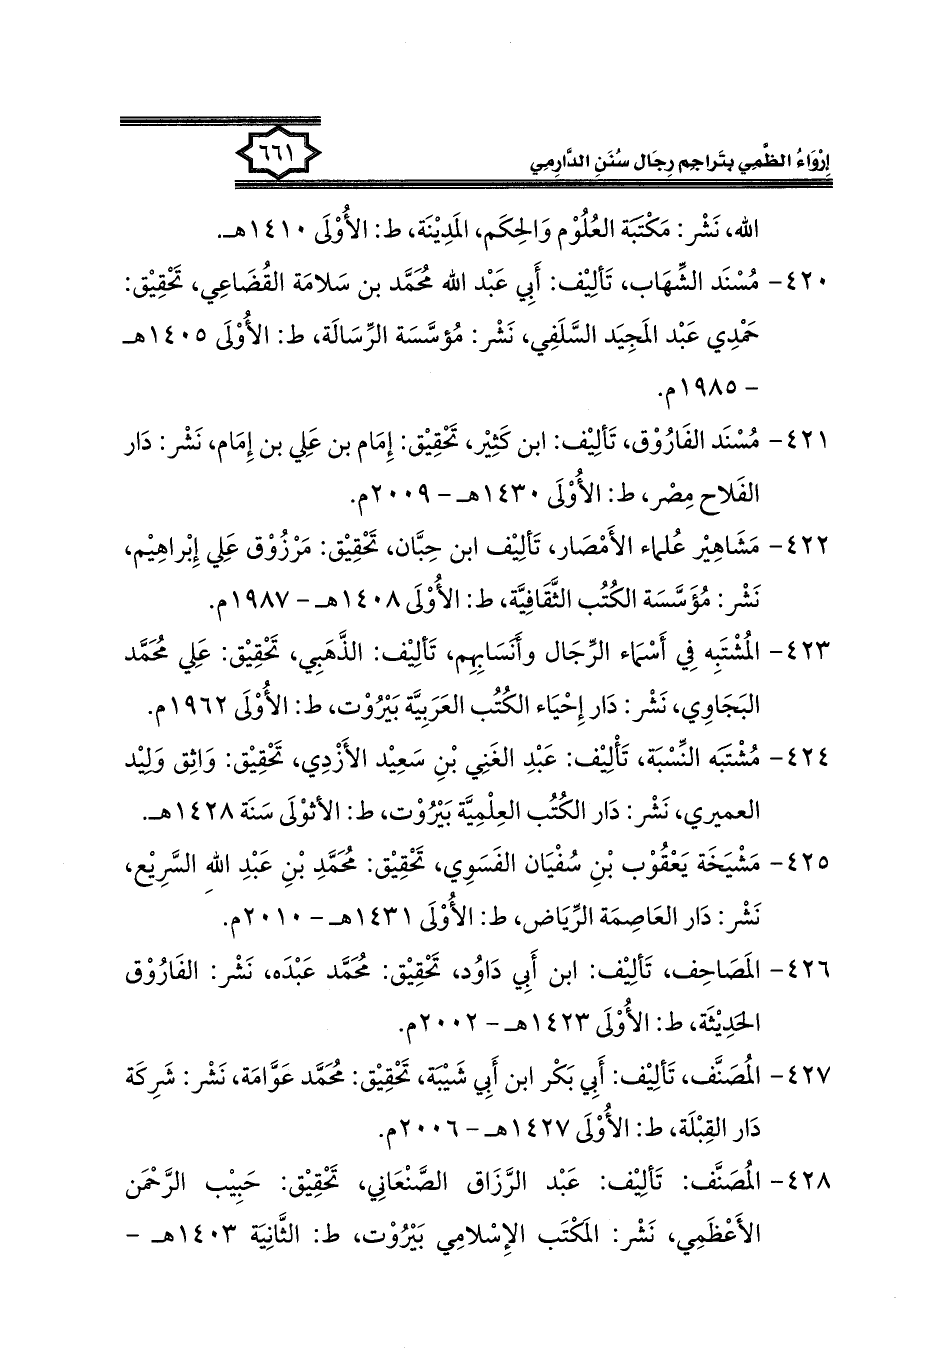 إِرْوَاءُ الظَّمِي بتَراجِم رِجَال سُنَنِ الدَّارِمِي
٦٦١
الله، نَشْر: مَكْتَبة العُلُوْم وَالحِكَم، المَدِيْنَة، ط: الأُوْلَى ١٤١٠هـ.
٤٢٠- مُسْنَد الشِّهَاب، تَألِيْف: أَبي عَبْد الله مُحَمَّد بن سَلامَة القُضَاعِي، تَحْقِيْق:
حَمْدِي عَبْد المَجِيَد السَّلَفِي، نَشْر: مُؤسَّسَة الرِّسَالَة، ط: الأُوْلَى ١٤٠٥هـ
- ١٩٨٥م.
٤٢١- مُسْنَد الفَارُوْق، تَألِيْف: ابن كَثِيْر، تَحْقِيْق: إِمَام بن عَلي بن إِمَام، نَشْر: دَار
الفَلَاح مِصْر، ط: الأُوْلَى ١٤٣٠هـ - ٢٠٠٩م.
٤٢٢- مَشَاهِيْر عُلماء الأَمْصَار، تَألِيْف ابن حِبَّان، تَحْقِيْق: مَرْزُوْق عَلي إِبْراهِيْم،
نَشْر: مُؤَسَّسَة الكُتُب الثَّقَافِيَّة، ط: الأُوْلَى ١٤٠٨هـ - ١٩٨٧م.
٤٢٣- المُشْتَبِه فِي أَسْمَاء الرِّجَال وأَنسَابِهِم، تَألِيْف: الذَّهَبِي، تَحْقِيْق: عَلِي مُحَمَّد
البَجَاوِي، نَشْر: دَار إِحْيَاء الكُتُب العَرَبِيَّة بَيْرُوْت، ط: الأُوْلَى ١٩٦٢م.
٤٢٤- مُشْتَبَه النِّسْبَة، تَألِيْف: عَبْدِ الغَنِي بْنِ سَعِيْد الأَزْدِي، تَحْقِيْق: وَاثِق وَلِيْد
العميري، نَشْر: دَار الكُتُب العِلْمِيَّة بَيْرُوْت، ط: الأثوْلَى سَنَة ١٤٢٨هـ.
٤٢٥- مَشْيَخَة يَعْقُوْب بْنِ سُفْيَان الفَسَوِي، تَحْقِيْق: مُحَمَّدِ بْنِ عَبْدِ اللهِ السَّرِيْع،
نَشْر: دَار العَاصِمَة الرِّيَاض، ط: الأُوْلَى ١٤٣١هـ - ٢٠١٠م.
٤٢٦- المَصَاحِف، تَألِيْف: ابن أَبي دَاوُد، تَحْقِيْق: مُحَمَّد عَبْدَه، نَشْر: الفَارُوْق
الحَدِيْثَة، ط: الأُوْلَى ١٤٢٣هـ - ٢٠٠٢م.
٤٢٧- المُصَنَّف، تَألِيْف: أَبي بَكْر ابن أَبي شَيْبَة، تَحْقِيْق: مُحَمَّد عَوَّامَة، نَشْر: شَرِكَة
دَار القِبْلَة، ط: الأُوْلَى ١٤٢٧هـ - ٢٠٠٦م.
٤٢٨- المُصَنَّف: تَألِيْف: عَبْد الرَّزَاق الصَّنْعَاني، تَحْقِيْق: حَبِيْب الرَّحْمَن
الأَعْظَمِي، نَشْر: المَكْتَب الإِسْلامِي بَيْرُوْت، ط: الثَّانِيَة ١٤٠٣هـ -